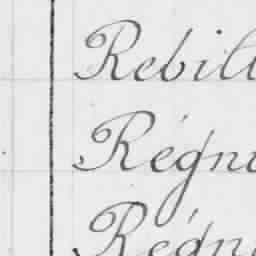 Rebill
Régni
Régn